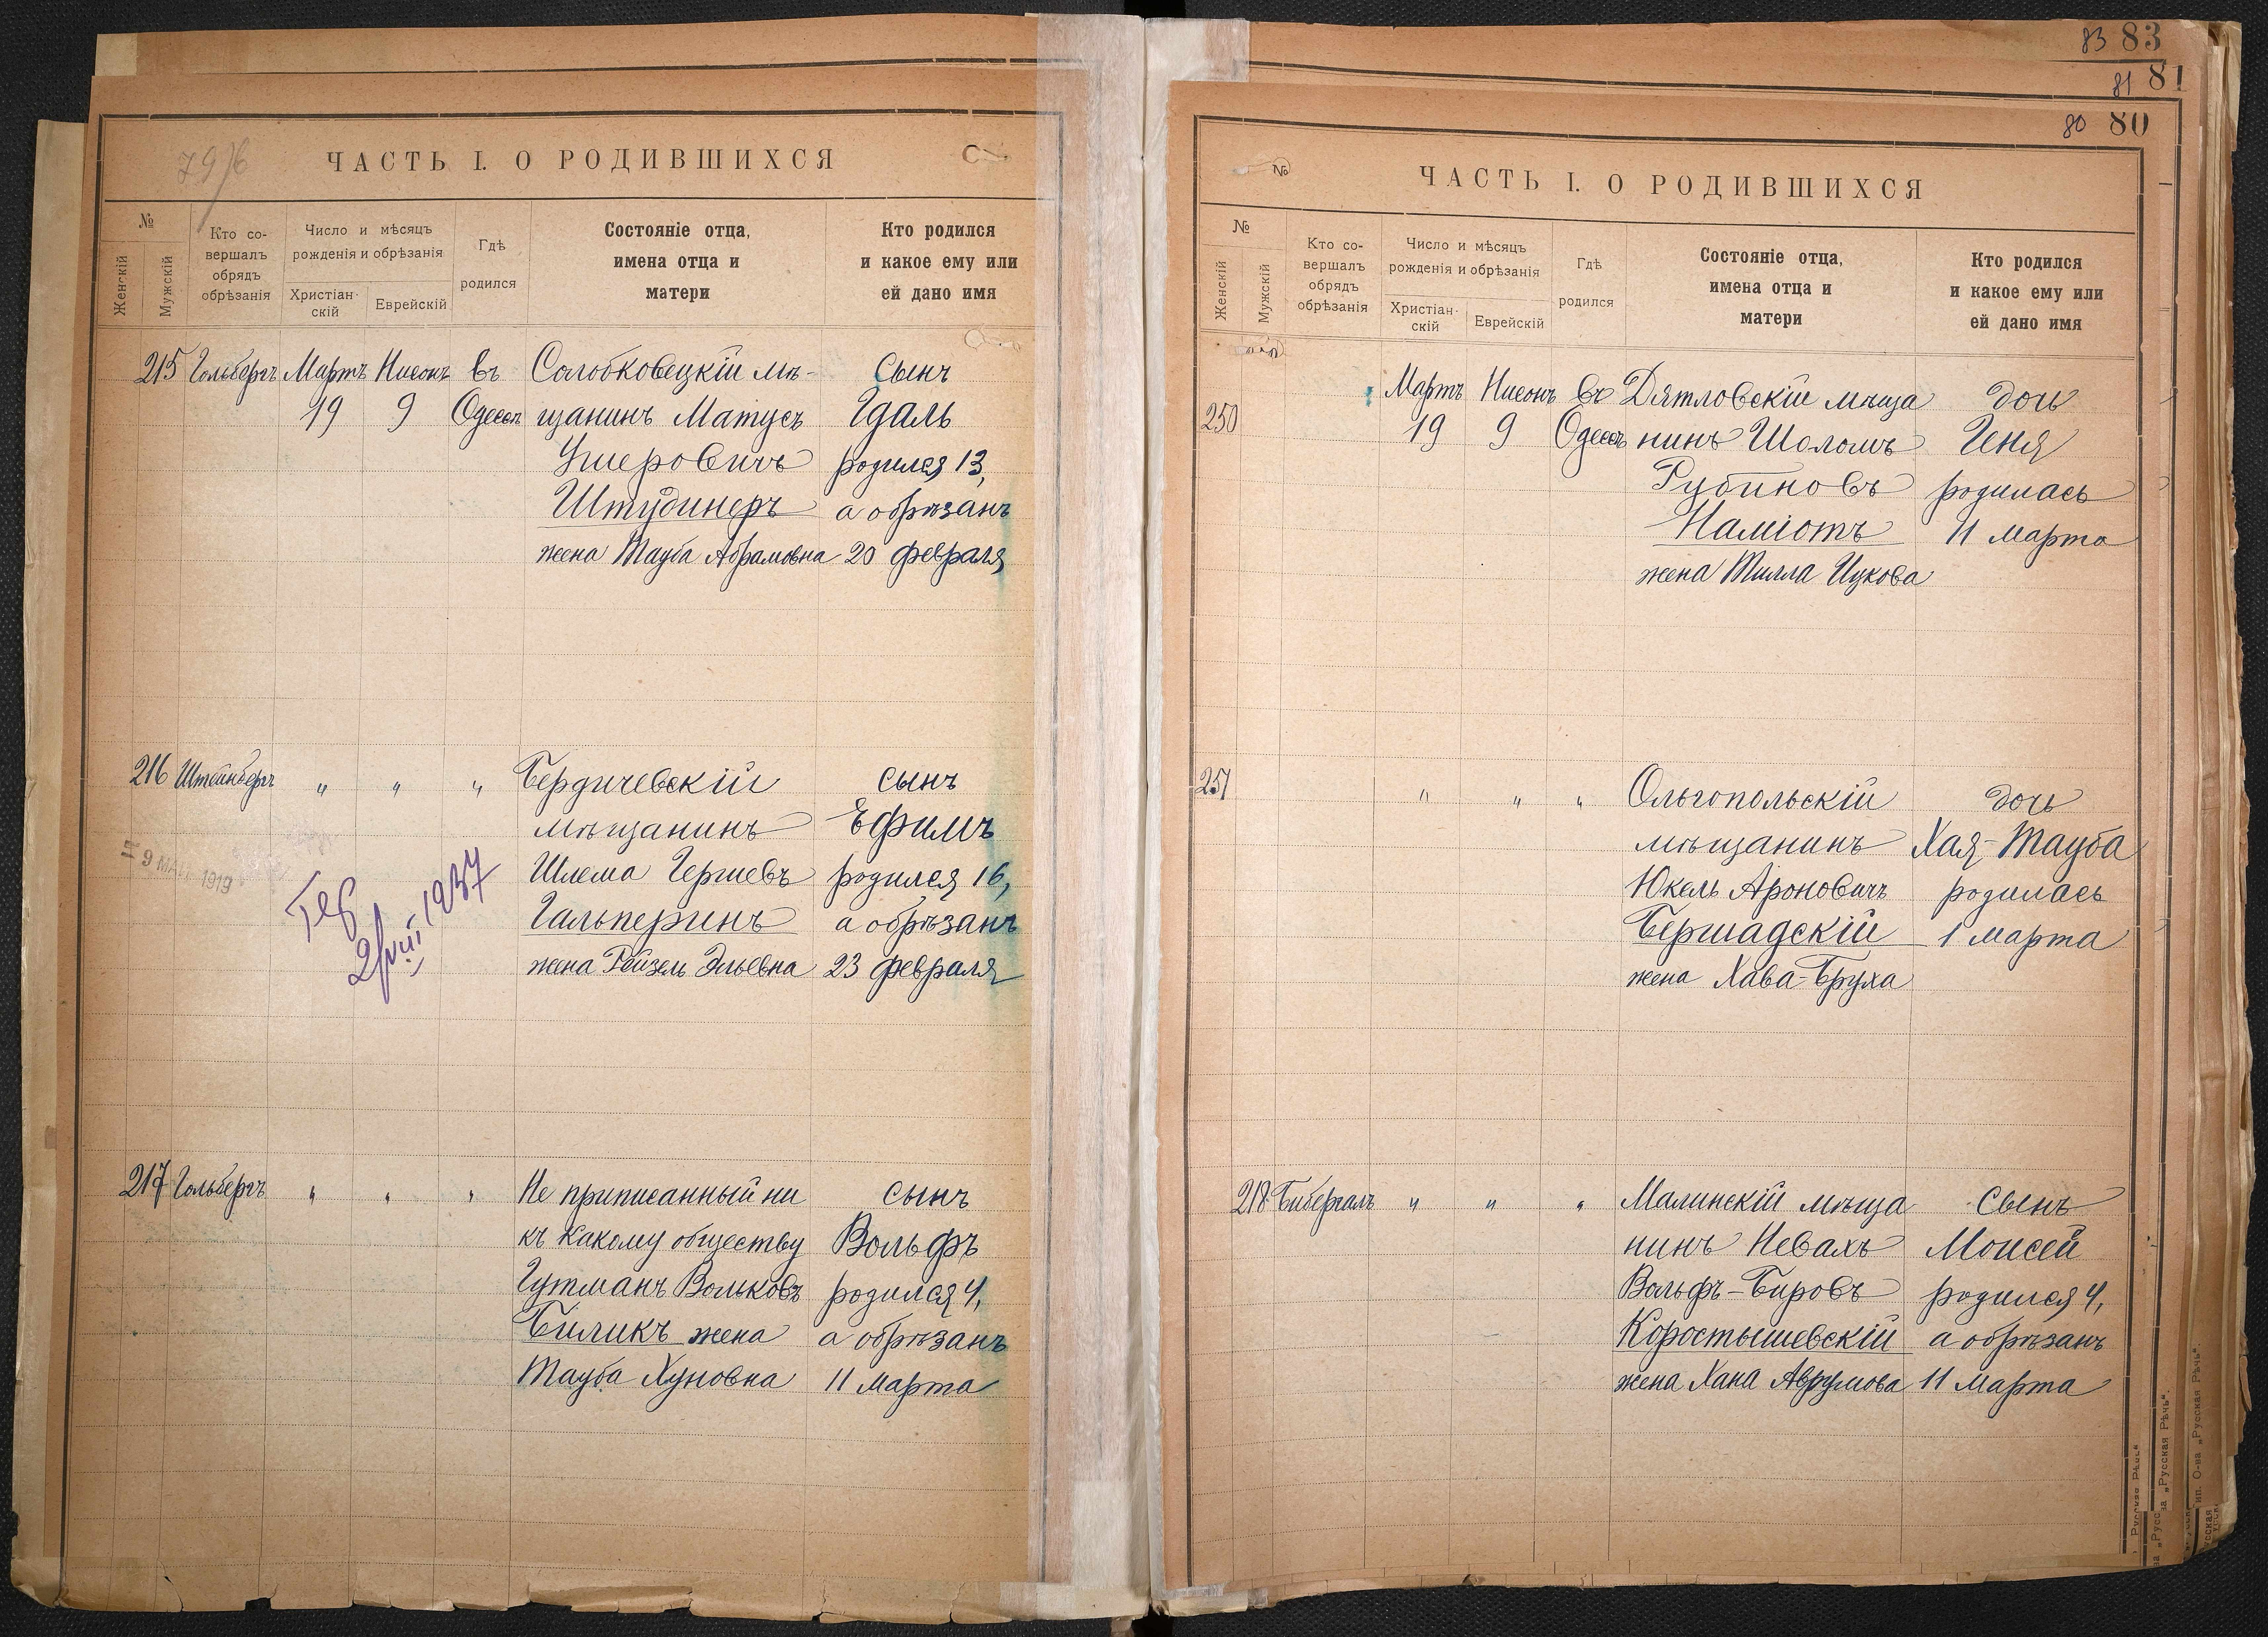 83 83
81 81
80 80
79/6
ЧАСТЬ I. О РОДИВШИХСЯ
№
Женскій
Мужскій
Кто совершалъ обрядъ обрѣзанія
Число и мѣсяцъ рожденія и обрѣзанія
Христіанскій
Еврейскій
Гдѣ родился
Состояніе отца, имена отца и матери
Кто родился и какое ему или ей дано имя
215 Гольбергъ Мартъ Нисонъ въ Солобковецкій мѣ- Сынъ
19 9 Одессѣ щанинъ Матусъ Гдаль
Ушеровичъ родился 13,
Штудинеръ а обрѣзанъ
жена Тауба Абрамовна 20 февраля
216 Штейнбергъ " " " Бердичевскій сынъ
мѣщанинъ Ефимъ
Шлема Гершевъ родился 16,
Гальперинъ а обрѣзанъ
жена Рейзель Эльевна 23 февраля
9 1919
2/VIII 1937
217 Гольбергъ " " " Не приписанный ни сынъ
къ какому обществу Вольфъ
Гутманъ Вольковъ родился 4,
Биликъ жена а обрѣзанъ
Тауба Хуновна 11 марта
ЧАСТЬ I. О РОДИВШИХСЯ
№
№
Женскій
Мужскій
Кто совершалъ обрядъ обрѣзанія
Число и мѣсяцъ рожденія и обрѣзанія
Христіанскій
Еврейскій
Гдѣ родился
Состояніе отца, имена отца и матери
Кто родился и какое ему или ей дано имя
Мартъ Нисонъ въ Дятловскій мѣща дочь
250 19 9 Одессѣ нинъ Шоломъ Геня
Рубиновъ родилась
Наміотъ 11 марта
жена Тилла Ицкова
251 " " " Ольгопольскій дочь
мѣщанинъ Хая-Тауба
Юкель Ароновичъ родилась
Бершадскій 1 марта
жена Хава-Бруха
218 Бибергалъ " " " Малинскій мѣща Сынъ
нинъ Невахъ Моисей
Вольфъ-Бировъ родился 4,
Коростышевскій а обрѣзанъ
жена Хана Аврумова 11 марта
„Русская Рѣчь".
О-ва „Русская Рѣчь".